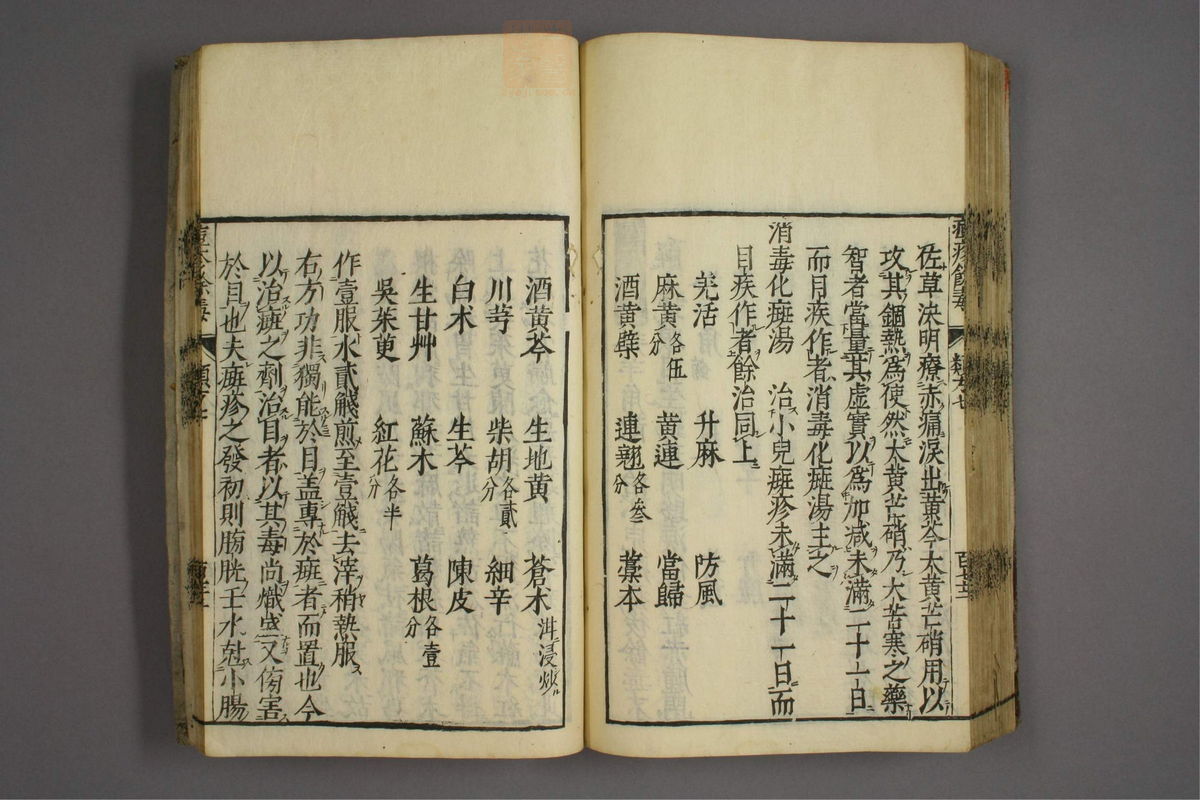 佐草決明療赤痛淚出黄芩大黄芒硝用以
攻其錮熱爲使然大黄芒硝乃大苦寒之藥
智者當量其虛實以爲加减未滿二十一日
而目疾作者消毒化斑湯主之
消毒化斑湯 治小兒斑疹未滿二十一日而
目疾作者餘治同上
羌活 升麻 防風
麻黄各伍分 黄連 當歸
酒黄蘗 連翹各叁分 藁本
酒黄芩 生地黄 蒼术泔浸炒
川芎 柴胡各貳分 細辛
白术 生芩 陳皮
生甘艸 蘇木 葛根各壹分
吳茱萸 紅花各半分
作壹服水貳觥煎至壹觥去滓稍熱服
右方功非獨能於目盖專於斑者而置也今
以治斑之劑治目者以其毒尚熾盛又傍害
於目也夫斑疹之發初則膀胱壬水尅小腸